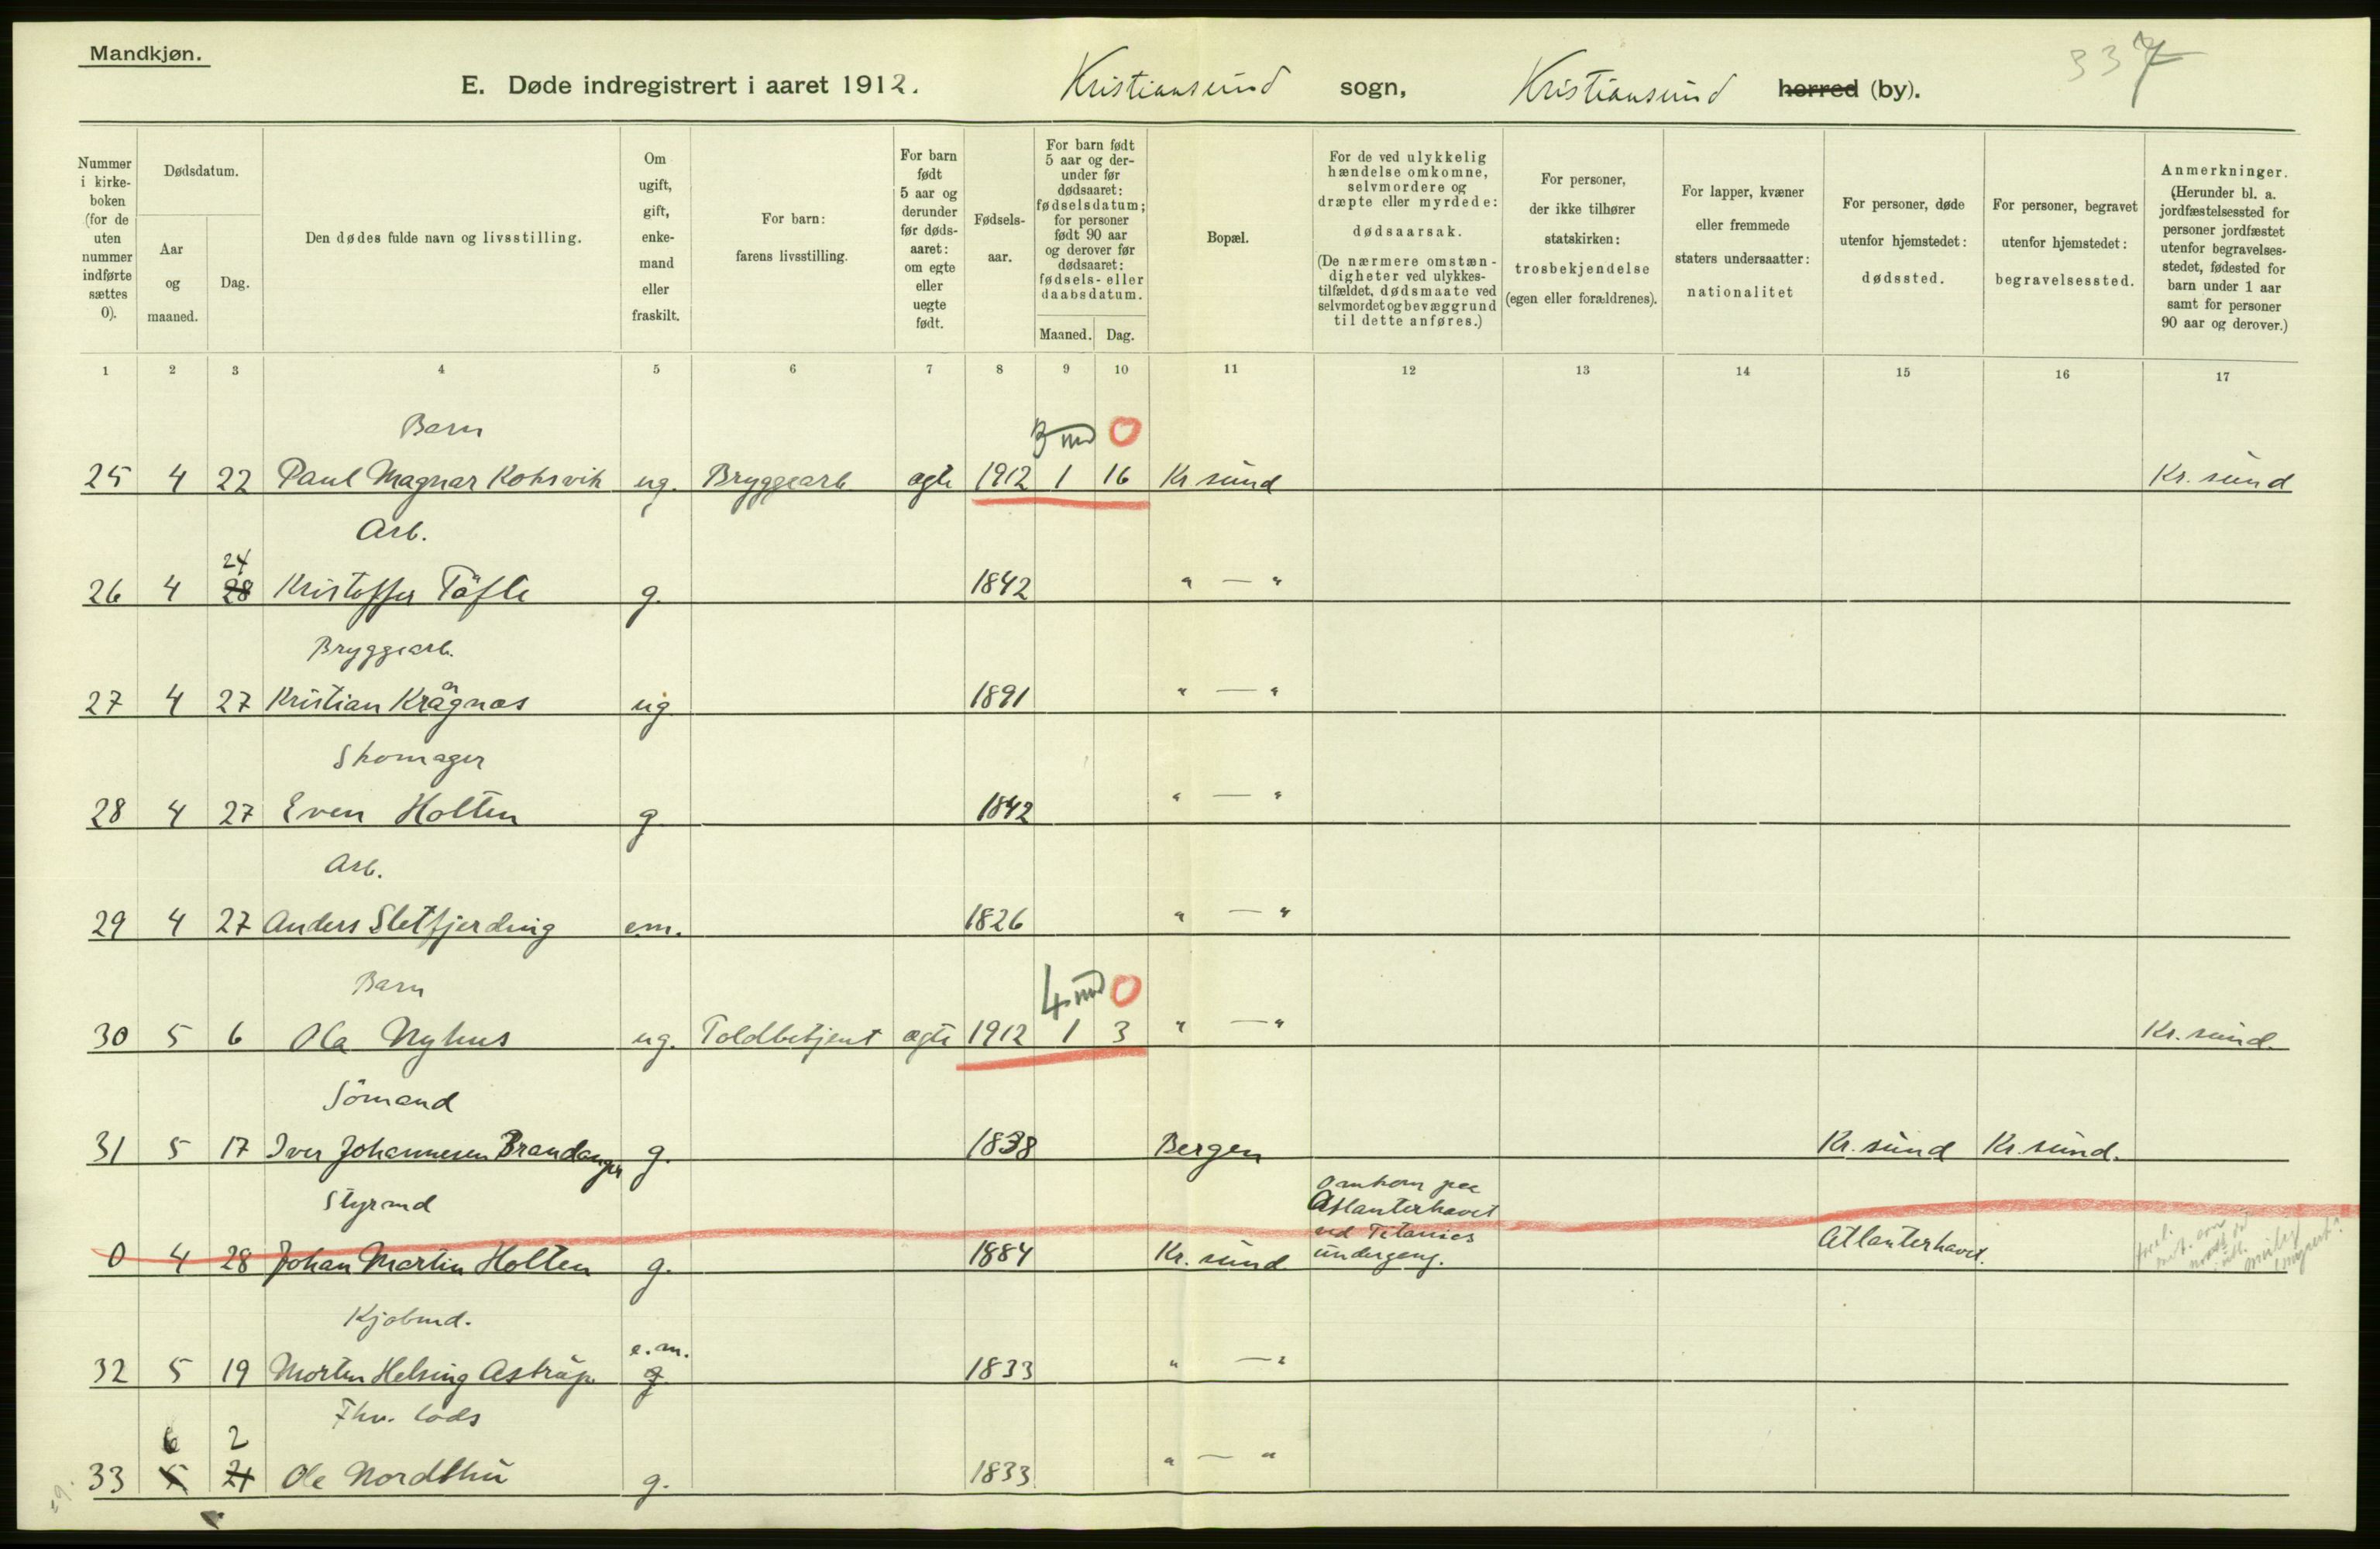 Mandkjøn.
E. Døde indregistrert i aaret 1912. Kristiansund sogn, Kristiansund horred (by).
337
Nummer i kirke-boken (for de uten nummer indførte sættes 0).
Dødsdatum.
Aar og maaned.
Dag.
Den dødes fulde navn og livsstilling.
Om ugift, gift, enke-mand eller fraskilt.
For barn: farens livsstilling.
For barn født 5 aar og derunder før døds-aaret: om egte eller uegte født.
Fødsels-aar.
For barn født 5 aar og der-under før dødsaaret: fødselsdatum; for personer født 90 aar og derover før dødsaaret: fødsels- eller daabsdatum.
Maaned. Dag.
Bopæl.
For de ved ulykkelig hændelse omkomne, selvmordere og dræpte eller myrdede: dødsaarsak. (De nærmere omstæn-digheter ved ulykkes-tilfældet, dødsmaate ved selvmordet og bevæggrund til dette anføres.)
For personer, der ikke tilhører statskirken: trosbekjendelse (egen eller forældrenes).
For lapper, kvæner eller fremmede staters undersaatter: nationalitet
For personer, døde utenfor hjemstedet: dødssted.
For personer, begravet utenfor hjemstedet: begravelsessted.
Anmerkninger. (Herunder bl. a. jordfæstelsessted for personer jordfæstet utenfor begravelses-stedet, fødested for barn under 1 aar samt for personer 90 aar og derover.)
1 2 3 4 5 6 7 8 9 10 11 12 13 14 15 16 17
Barn 3 md 0
25 4 22 Paul Magnar Kohsvik ug. Bryggearb ægte 1912 1 16 Kr sund Kr. sund
Arb.
24
26 4 28 Kristoffer Töfte g. 1842 " — "
Bryggearb.
27 4 27 Kristian Krågnæs ug 1891 " — "
Skomager
28 4 27 Even Holten g 1842 " — "
Arb.
29 4 27 Anders Sletfjerding em. 1826 " — "
Barn 4 md 0
30 5 6 Ola Nyhus ug. Toldbetjent ægte 1912 1 3 " — " Kr. sund.
Sömand
31 5 17 Iver Johannesen Brandanger g. 1838 Bergen Kr. sund Kr. sund.
Styrmd
omkom paa
Atlanterhavet
ved Titanics
0 4 28 Johan Martin Holten g. 1884 Kr. sund undergang. Atlanterhavet.
Kjøbmd.
e.m.
32 5 19 Morten Helsing Astrup g 1833 " — "
Fhv. lods
6 2
33 5 21 Ole Nordthu g. 1833 " — "